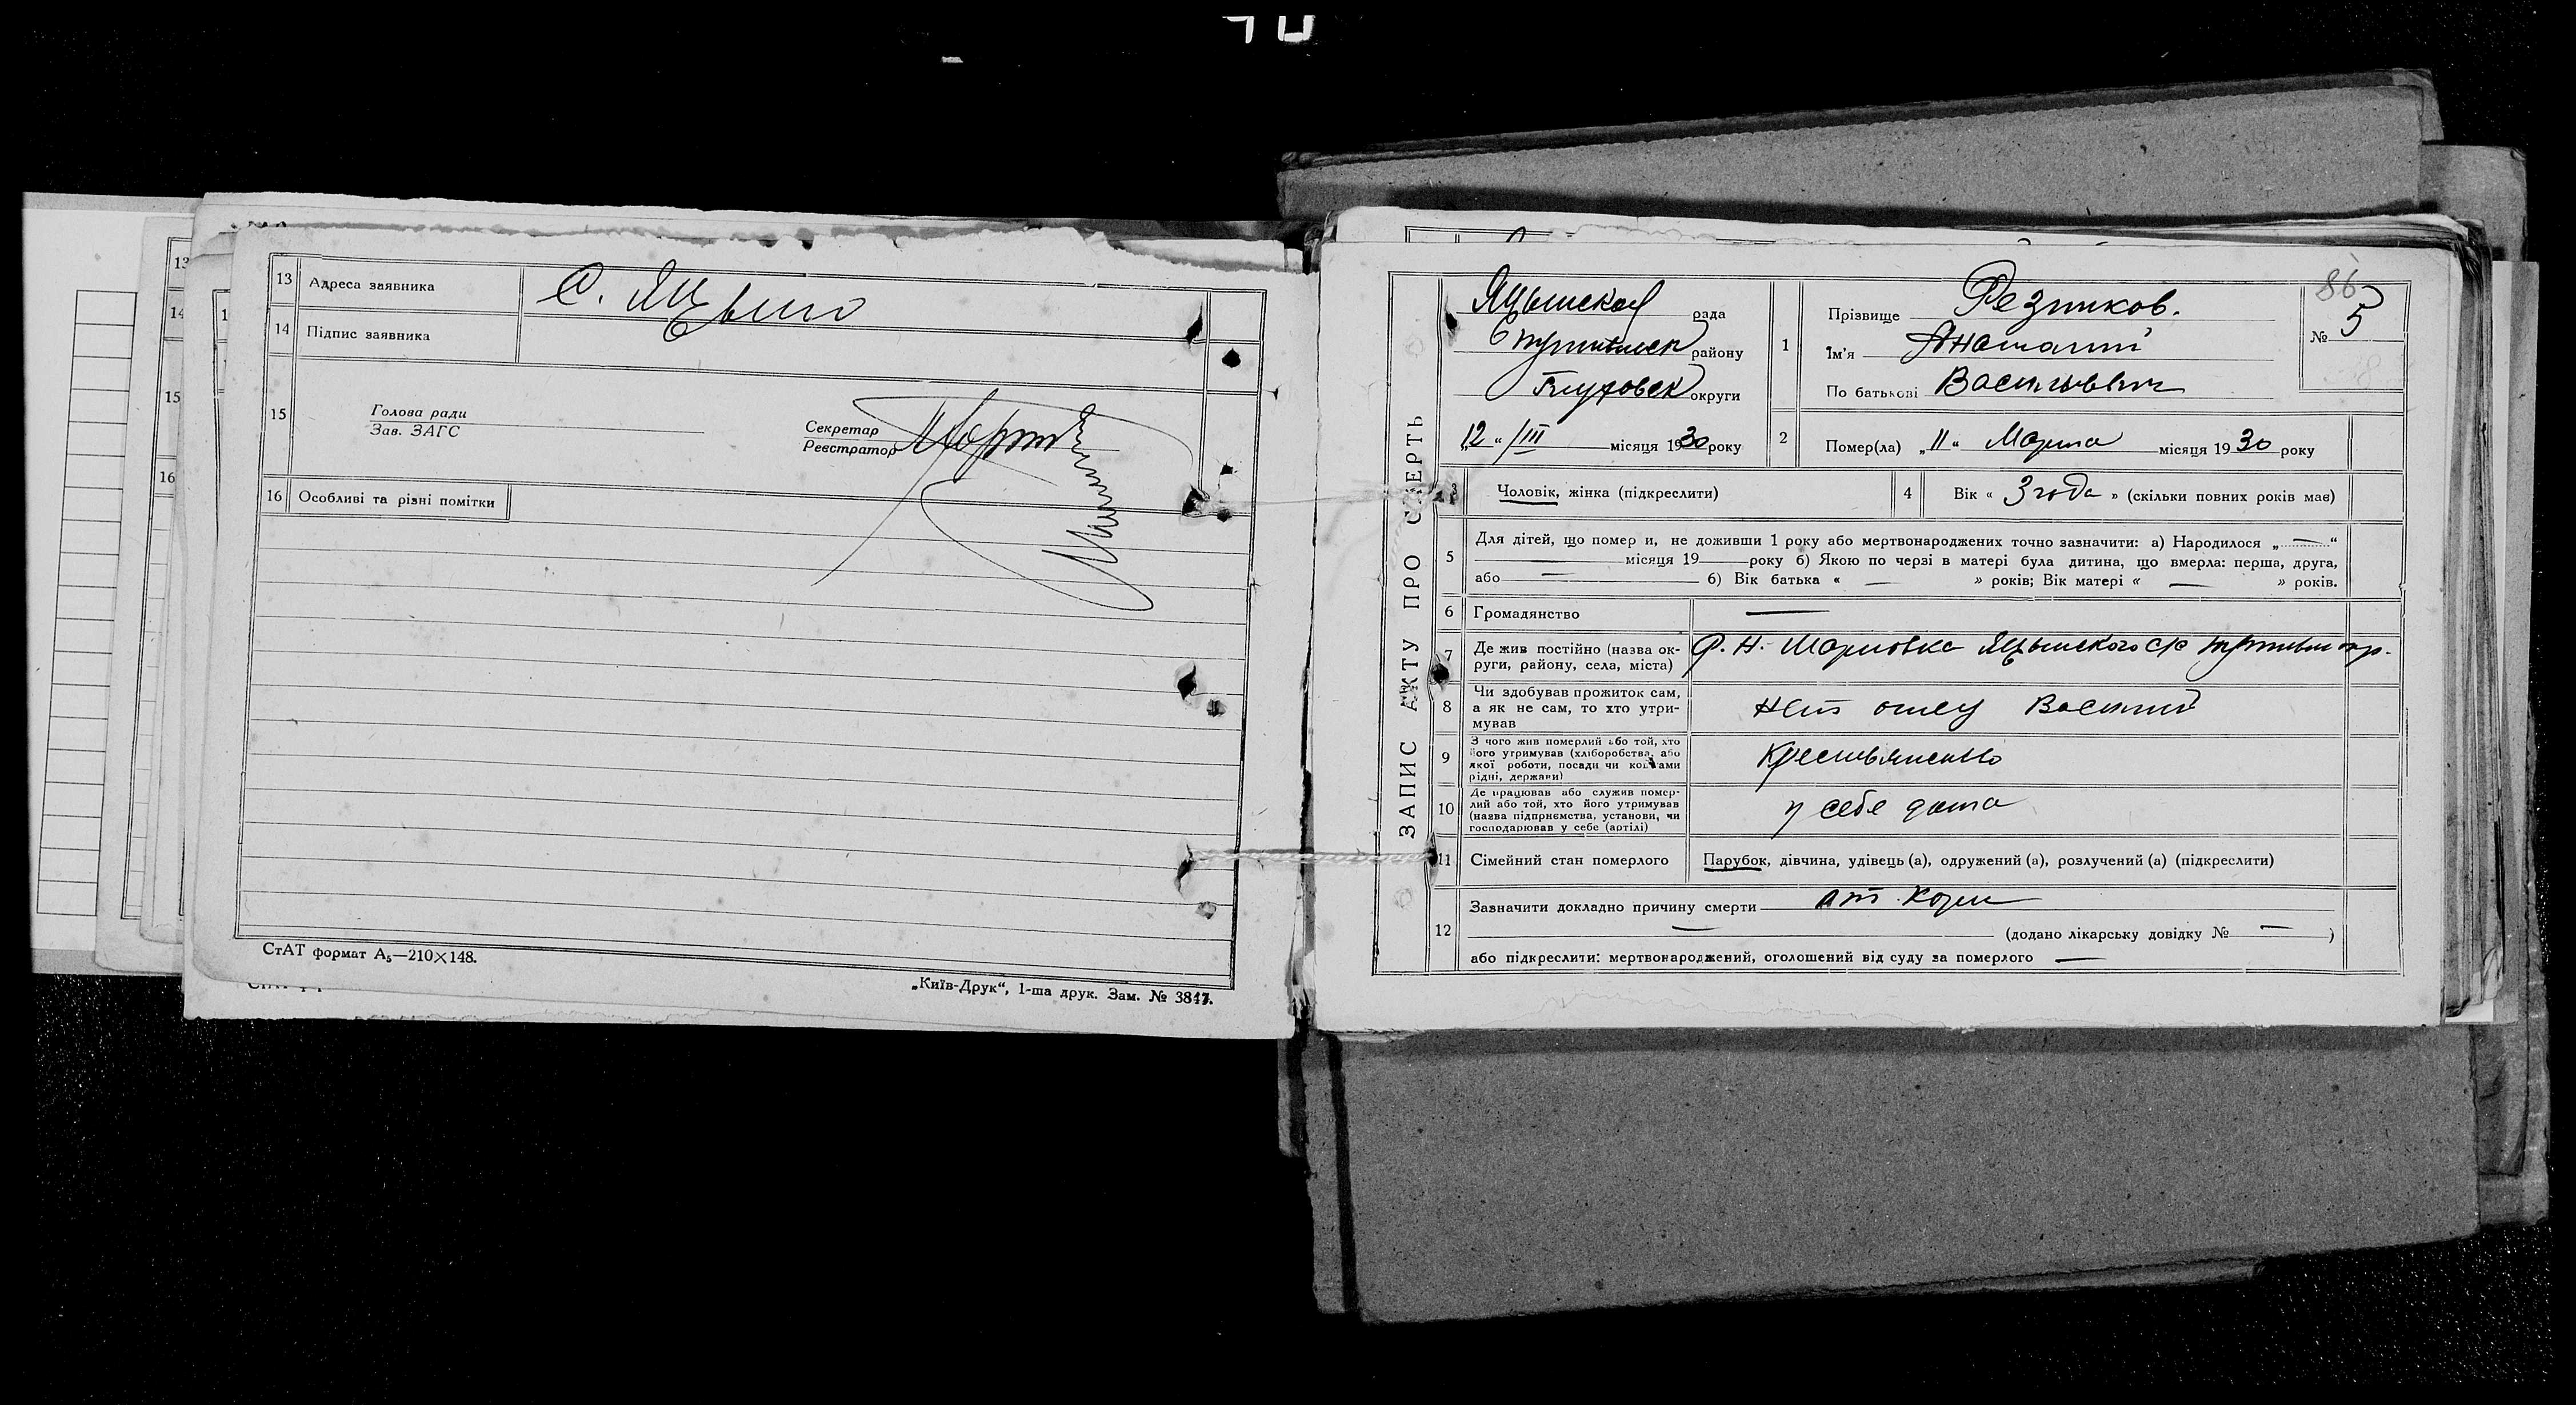 13 Адреса заявника С. Яцыно
14 Підпис заявника
15 Голова ради
Зав. ЗАГС
Секретар
Реєстратор
16 Особливі та різні помітки
СтАТ формат А₅—210×148.
„Київ-Друк“, 1-ша друк. Зам. № 3847.
ЗАПИС АКТУ ПРО СМЕРТЬ
86
№ 5
Яцынская рада
Путивльск району
Глуховск округи
„12“ /III місяця 1930 року
1 Прізвище Резников.
Ім'я Анатолий
По батькові Васильевич
2 Помер(ла) „11“ Марта місяця 1930 року
3 Чоловік, жінка (підкреслити)
4 Вік « 3 года » (скільки повних років мав)
5 Для дітей, що померли, не доживши 1 року або мертвонароджених точно зазначити: а) Народилося „—“
— місяця 19— року б) Якою по черзі в матері була дитина, що вмерла: перша, друга,
або — б) Вік батька « — » років; Вік матері « — » років.
6 Громадянство —
7 Де жив постійно (назва ок-
руги, району, села, міста) Яцынского с/с
8 Чи здобував прожиток сам,
а як не сам, то хто утри-
мував нет отец Василий
9 З чого жив померлий або той, хто
його утримував (хліборобства, або
якої роботи, посади чи коштами
рідні, держави) Крестьянство
10 Де працював або служив помер-
лий або той, хто його утримував
(назва підприємства, установи, чи
господарював у себе (артілі) у себе дома
11 Сімейний стан померлого Парубок, дівчина, удівець (а), одружений (а), розлучений (а) (підкреслити)
12 Зазначити докладно причину смерти от кори
— (додано лікарську довідку № — )
або підкреслити: мертвонароджений, оголошений від суду за померлого —